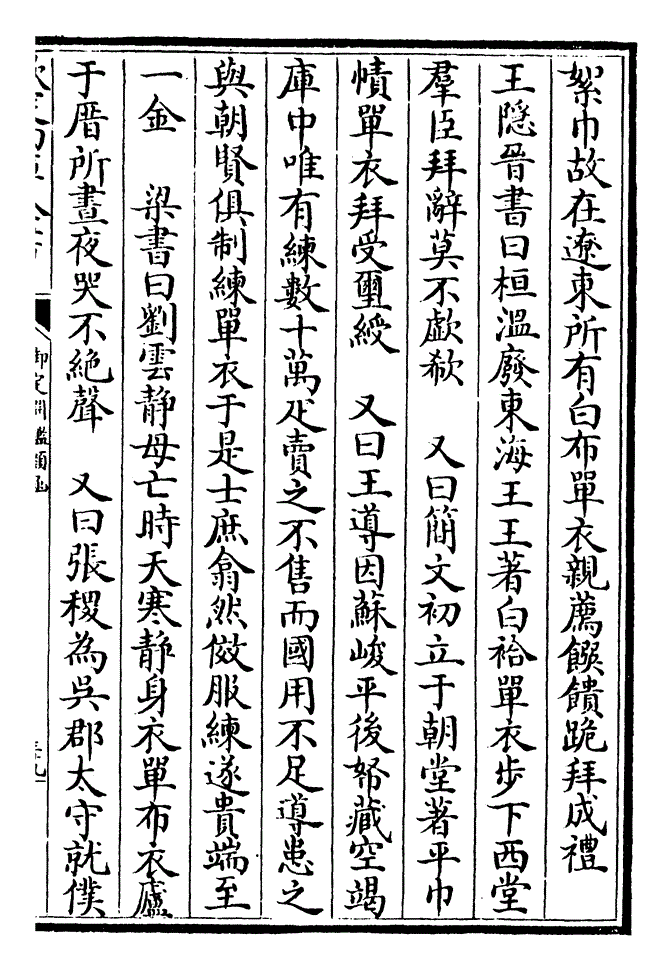 絮巾故在遼東所有白布單衣親薦饌饋跪拜成禮
王隱晉書曰桓溫廢東海王王著白袷單衣步下西堂
羣臣拜辭莫不歔欷　又曰簡文初立于朝堂著平巾
幘單衣拜受璽綬　又曰王導因蘇峻平後帑藏空竭
庫中唯有練數十萬疋賣之不售而國用不足導患之
與朝賢俱制練單衣于是士庶翕然傚服練遂貴端至
一金　梁書曰劉雲静母亡時天寒静身衣單布衣廬
于厝所晝夜哭不絶聲　又曰張稷為吳郡太守就僕
御定淵鑑類函